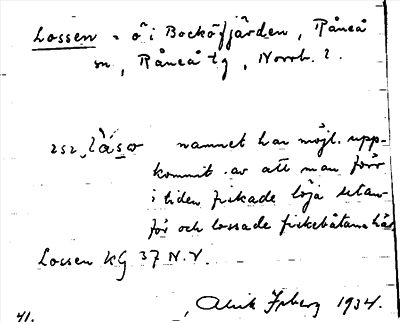 Lossen = ö i Bocköfjärden, Råneå
sn, Råneå tg, Norrb. l.
lå̀sɷ namnet har möjl. upp-
kommit av att man förr
i tiden fiskade löja utan-
för och lossade fiskebåtarna här
Lossen KG 37 N.V.
41. Alrik 1934.